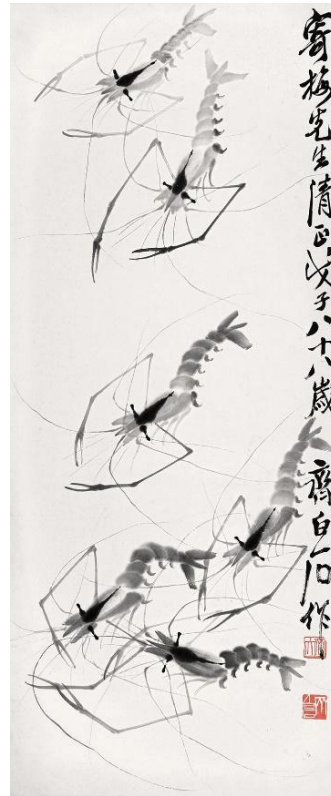 寄梅先生清正戊子八十八歲齊白石作